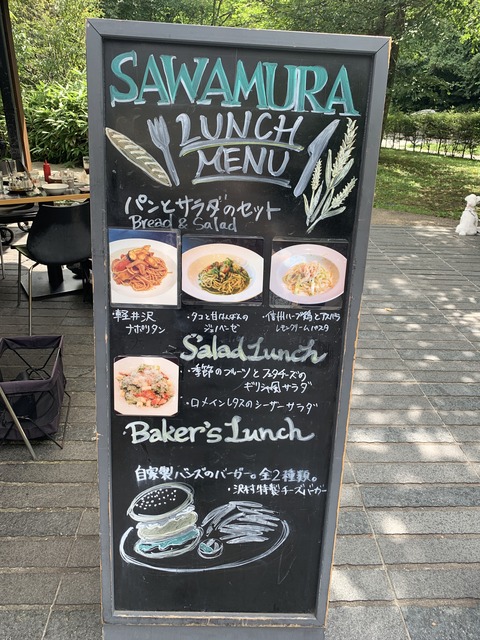 SAWAMURA
LUNCH
MENU
パンとサラダのセット
Bread & Salad
・軽井沢
ナポリタン
・タコと甘とんがらしの
ジェノベーゼ
・信州ハーブ鶏とズッキーニ
レモンクリームパスタ
Salad Lunch
・季節のフルーツとフェタチーズの
ギリシャ風サラダ
・ロメインレタスのシーザーサラダ
・Baker's Lunch
自家製バンズのバーガー。全2種類。
・沢村特製チーズバーガー